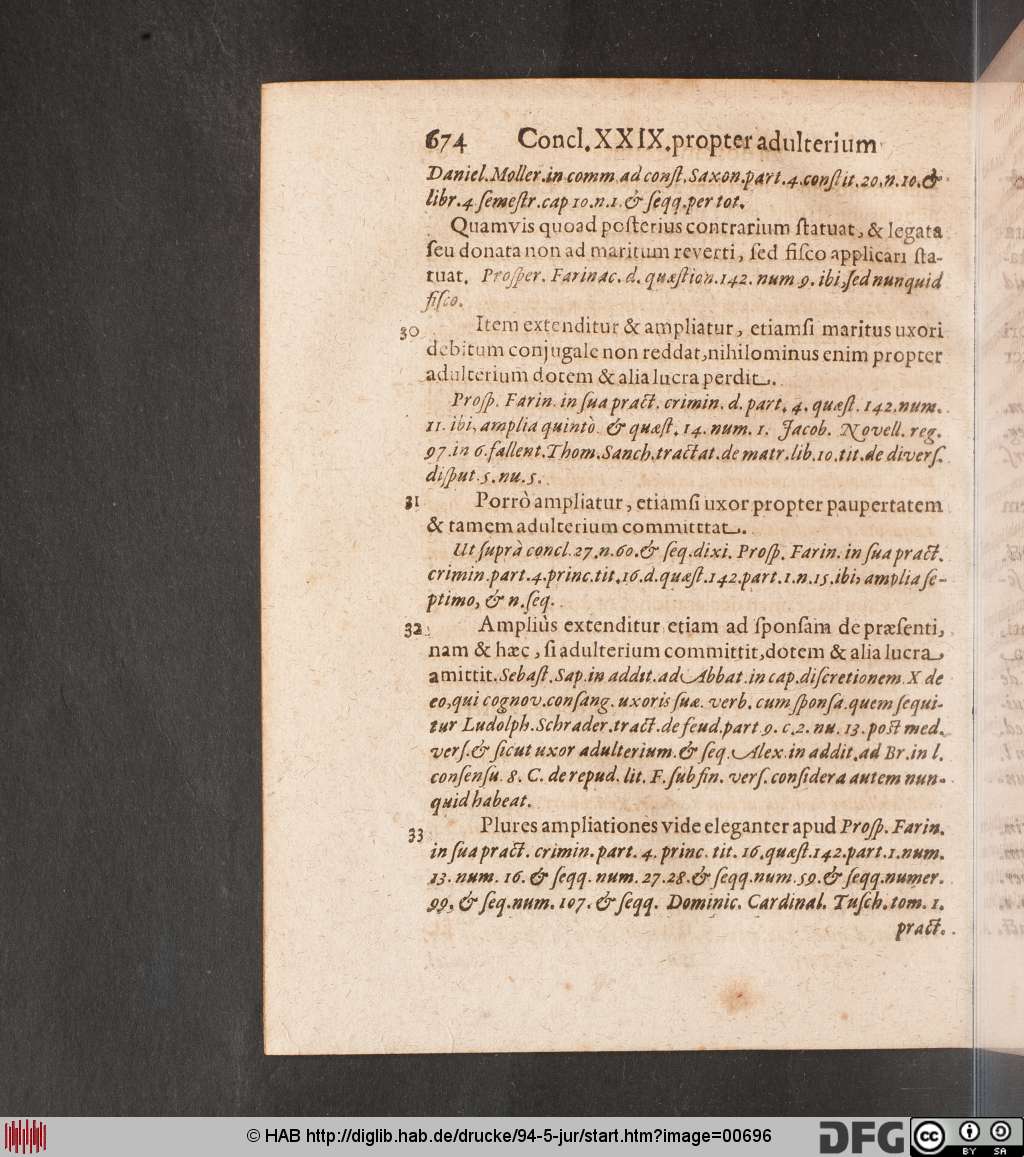 674 Concl. XXIX. propter adulterium
Daniel. Moller. in comm. ad conſt. Saxon. part. 4. conſtit. 20. n. 10. &
libr. 4 ſemeſtr. cap 10. n. 1. & ſeqq. per tot.
Quamvis quoad poſterius contrarium ſtatuat, & legata
ſeu donata non ad maritum reverti, ſed fiſco applicari ſta-
tuat. Proſper. Farinac. d. quæſtion. 142. num 9. ibi, ſed nunquid
fiſco.
30 Item extenditur & ampliatur, etiamſi maritus uxori
debitum conjugale non reddat, nihilominus enim propter
adulterium dotem & alia lucra perdit.
Proſp. Farin. in ſua pract. crimin. d. part. 4. quæſt. 142. num.
11. ibi, amplia quintò. & quæſt. 14. num. 1. Jacob. Novell. reg.
97. in 6. fallent. Thom. Sanch. tractat. de matr. lib. 10. tit. de diverſ.
diſput. 5. nu. 5.
31 Porrò ampliatur, etiamſi uxor propter paupertatem
& tamem adulterium committtat.
Ut ſuprà concl. 27. n. 60. & ſeq. dixi. Proſp. Farin. in ſua pract.
crimin. part. 4. princ. tit. 16. d. quæſt. 142. part. 1. n. 15. ibi, amplia ſe-
ptimo, & n. ſeq.
32 Ampliùs extenditur etiam ad ſponſam de præſenti,
nam & hæc, ſi adulterium committit, dotem & alia lucra
amittit. Sebaſt. Sap. in addit. ad Abbat. in cap. diſcretionem. X de
eo, qui cognov. conſang. uxoris ſuæ. verb. cum ſponſa. quem ſequi-
tur Ludolph. Schrader. tract. de feud. part 9. c. 2. nu. 13. poſt med.
verſ. & ſicut uxor adulterium. & ſeq. Alex. in addit. ad Br. in l.
conſenſu. 8. C. de repud. lit. F. ſub fin. verſ. conſidera autem nun-
quid habeat.
33 Plures ampliationes vide eleganter apud Proſp. Farin.
in ſua pract. crimin. part. 4. princ. tit. 16. quæſt. 142. part. 1. num.
13. num. 16. & ſeqq. num. 27. 28. & ſeqq. num. 59. & ſeqq. numer.
99. & ſeq. num. 107. & ſeqq. Dominic. Cardinal. Tuſch. tom. 1.
pract.
© HAB http://diglib.hab.de/drucke/94-5-jur/start.htm?image=00696
DFG
cc BY SA